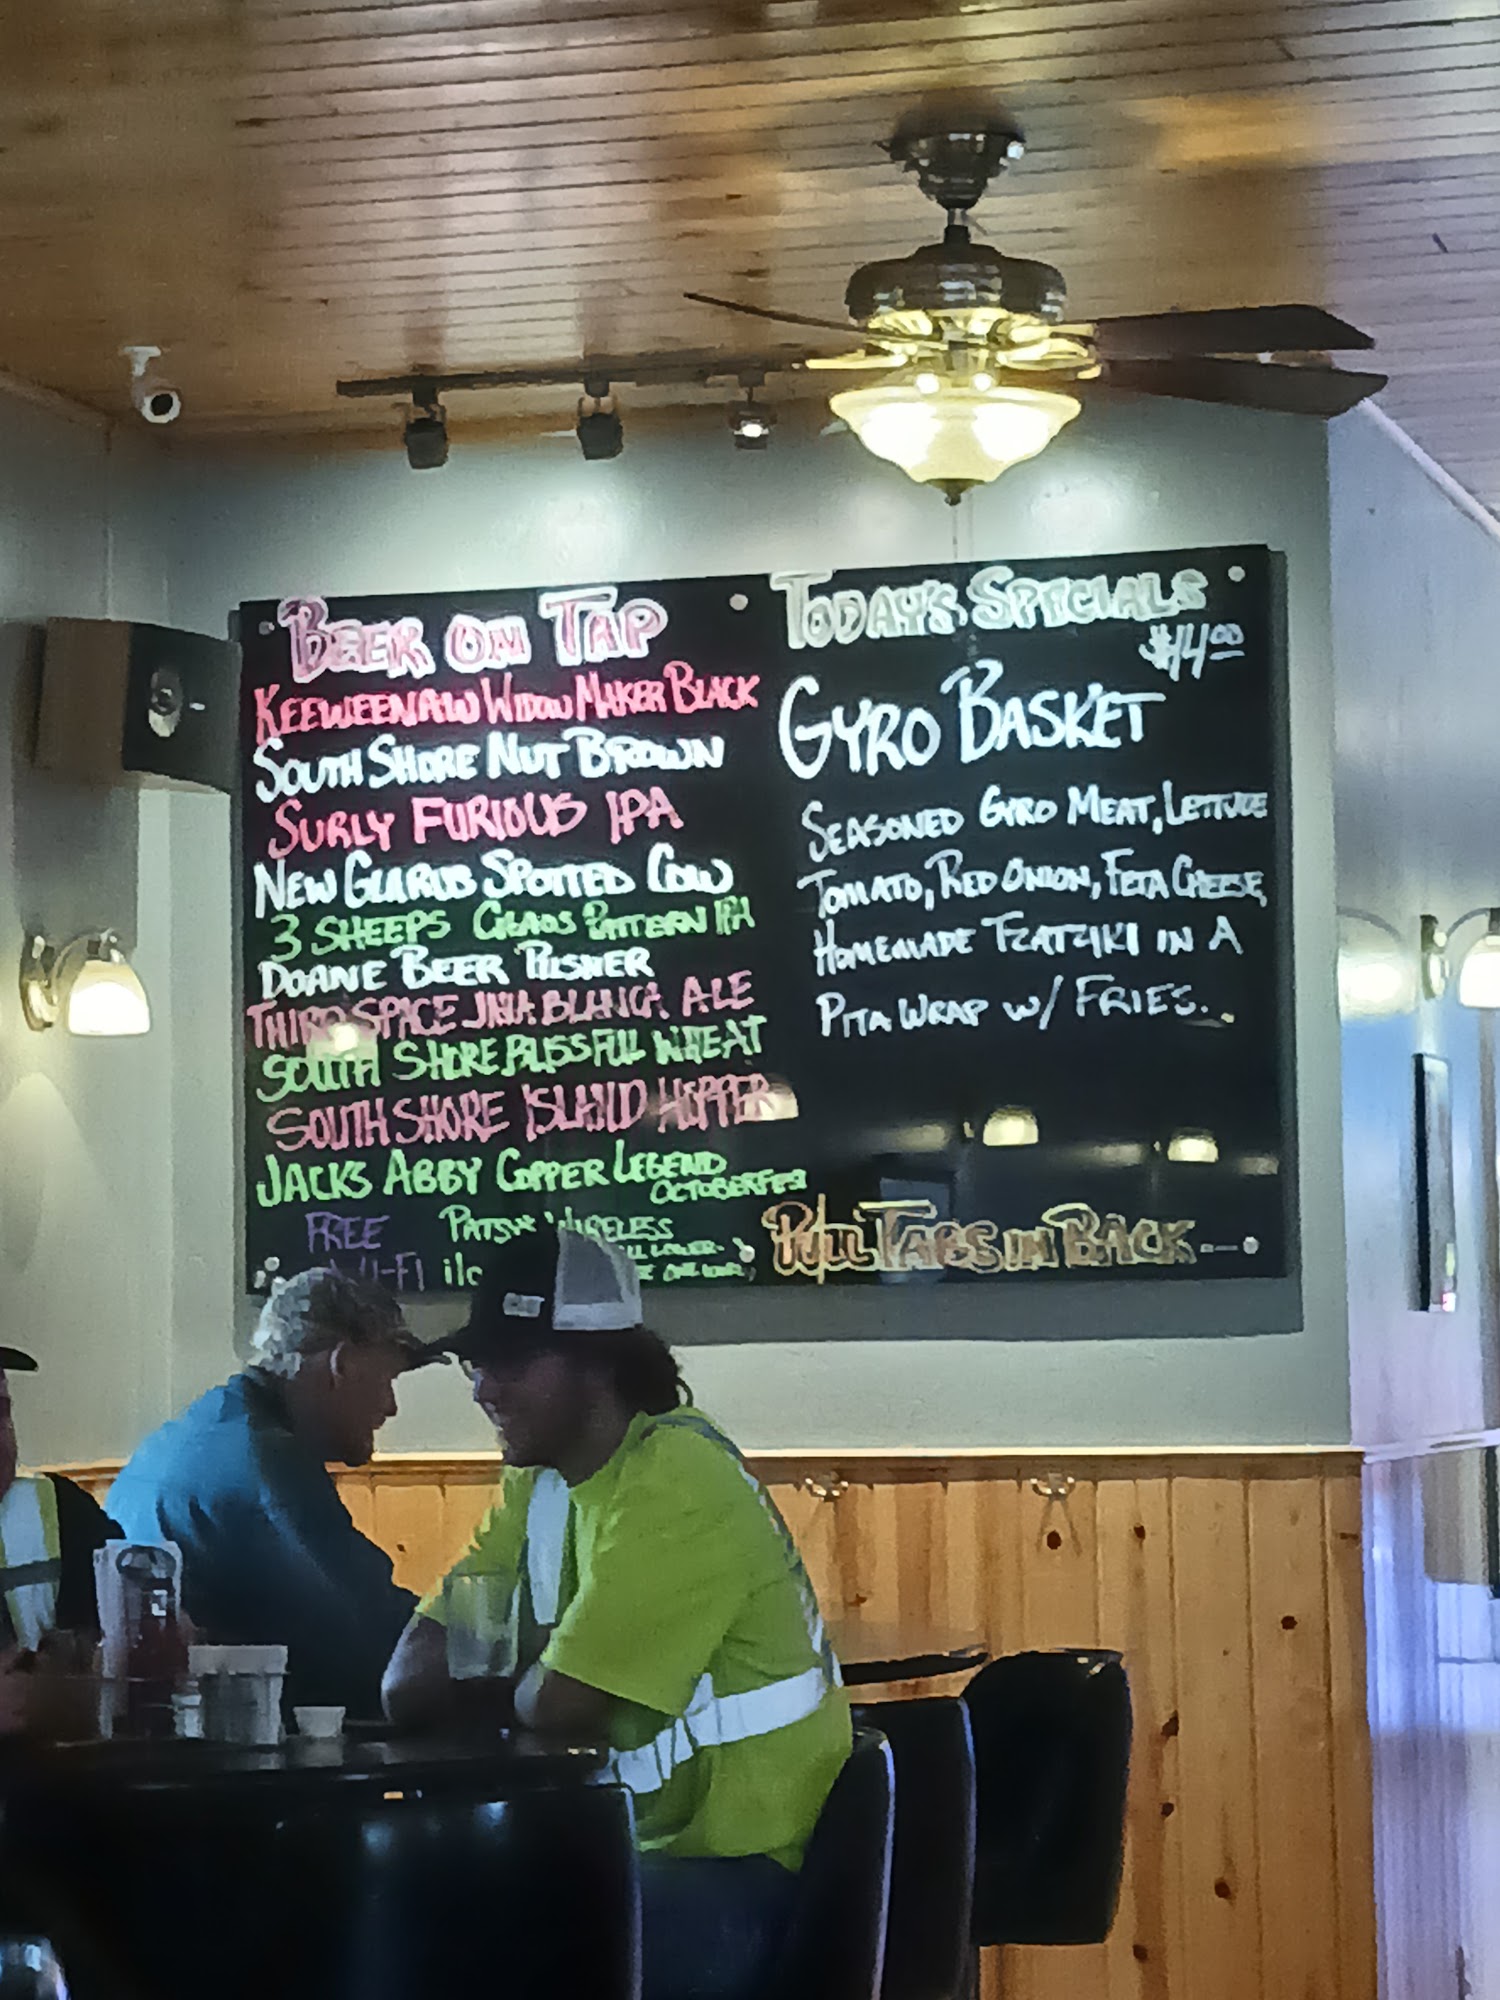 BEER ON TAP
KEEWEENAW WIDOW MAKER BLACK
SOUTH SHORE NUT BROWN
SURLY FURIOUS IPA
NEW GLARUS SPOTTED COW
3 SHEEPS CHAOS PATTERN IPA
DOANE BEER PILSNER
THIRD SPACE BLANCA ALE
SOUTH SHORE BLISSFUL WHEAT
SOUTH SHORE ISLAND HOPPER
JACKS ABBY COPPER LEGEND
OCTOBERFEST
FREE
WI-FI
WIRELESS
TODAY'S SPECIALS
$14.00
GYRO BASKET
SEASONED GYRO MEAT, LETTUCE
TOMATO, RED ONION, FETA CHEESE,
HOMEMADE TZATZIKI IN A
PITA WRAP W/ FRIES.
PULL TABS IN BACK